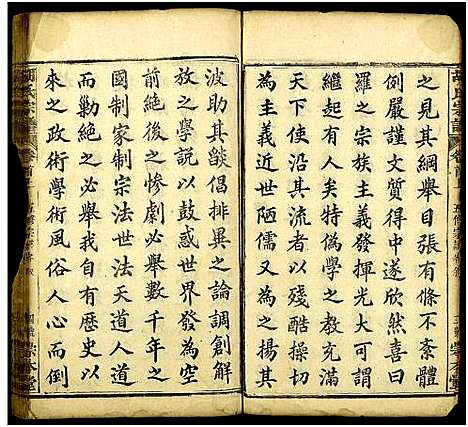 之見其綱舉目張有條不紊體
例嚴謹文質得中遂欣然喜曰
羅之宗族主義發揮光大可謂
繼起有人矣特偽學之教充滿
其間其流有不殘酷操
為主義近世陋儒為之揚其
波助其燄倡排異之論調創解
放之學說以鼓惑世界發為空
前絶之慘劇必舉數千年之
國制家制宗法世法天道人道
而勦絶之必舉我自有歷史以
來之政術學術風俗人心而倒
胡氏宗譜
卷首